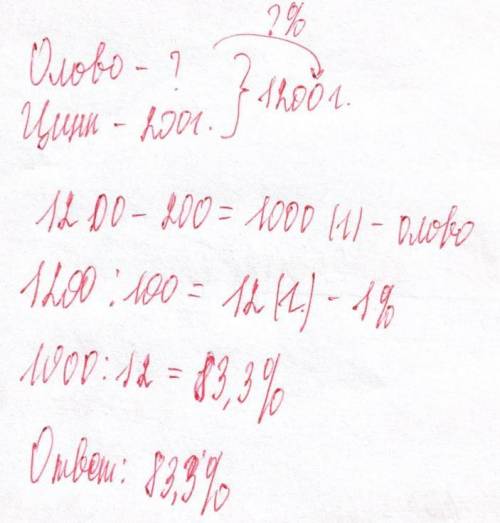 ?%
Олово - ?
Цинк - 200г. } 1200г.
12 00 - 200 = 1000 (г) - олово
1200 : 100 = 12 (г.) - 1%
1000 : 12 = 83,3%
Ответ: 83,3%